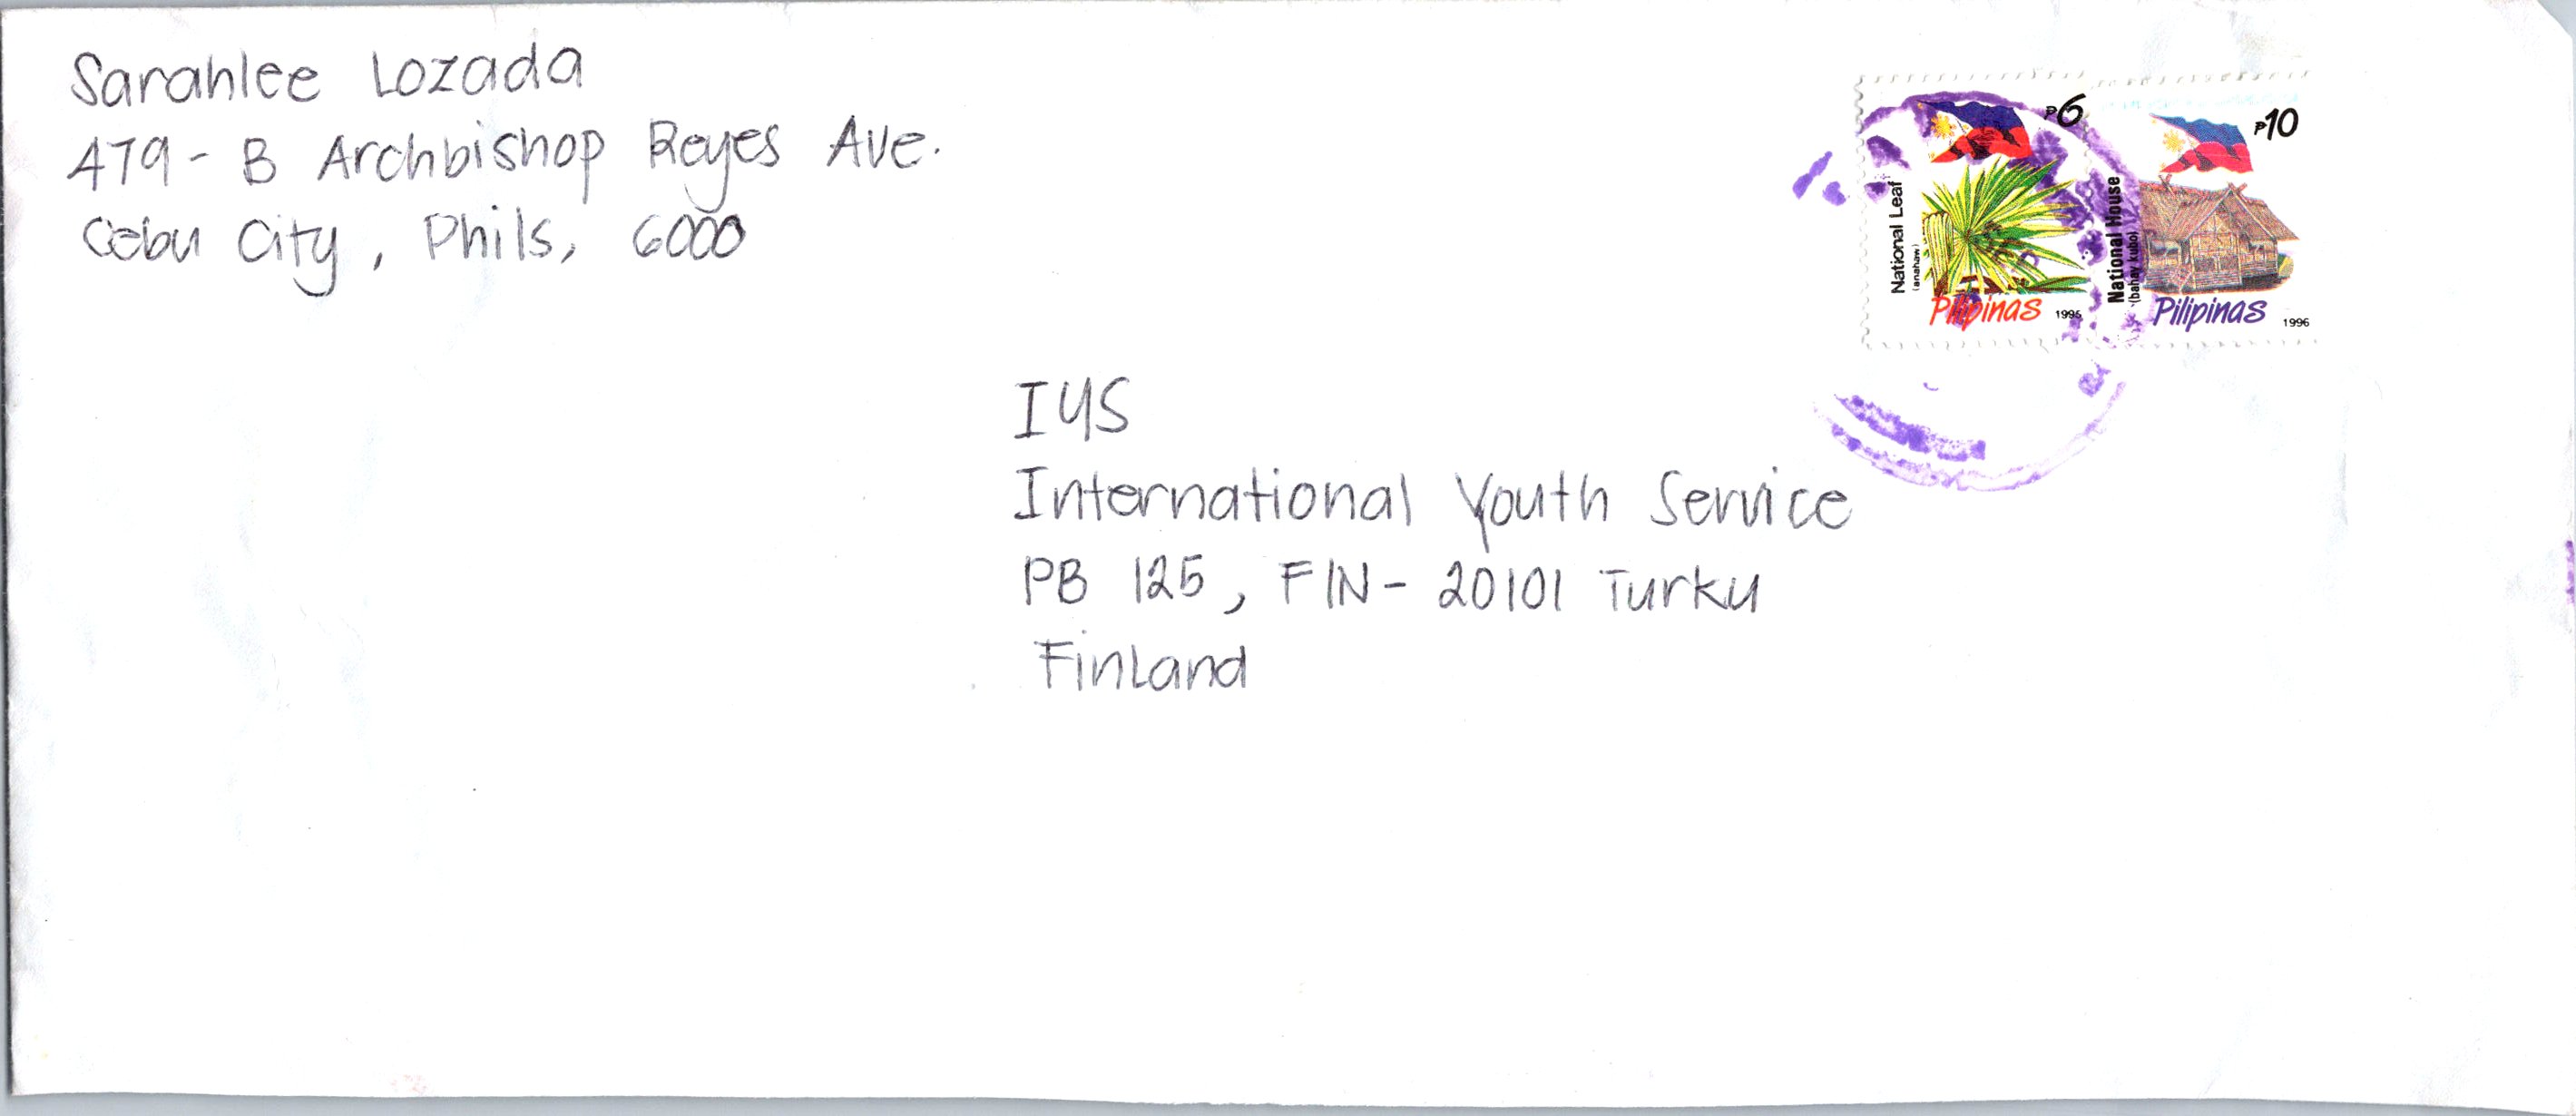 Sarahlee Lozada
479 - B Archbishop Reyes Ave.
Cebu City, Phils, 6000
₱6
National Leaf
(anahaw)
Pilipinas 1995
₱10
National House
(bahay kubo)
Pilipinas 1996
IYS
International Youth Service
PB 125, FIN - 20101 Turku
Finland